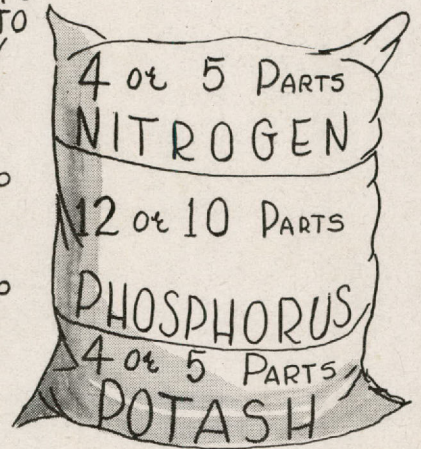 TO
4 or 5 PARTS
NITROGEN
12 or 10 PARTS
PHOSPHORUS
4 or 5 PARTS
POTASH